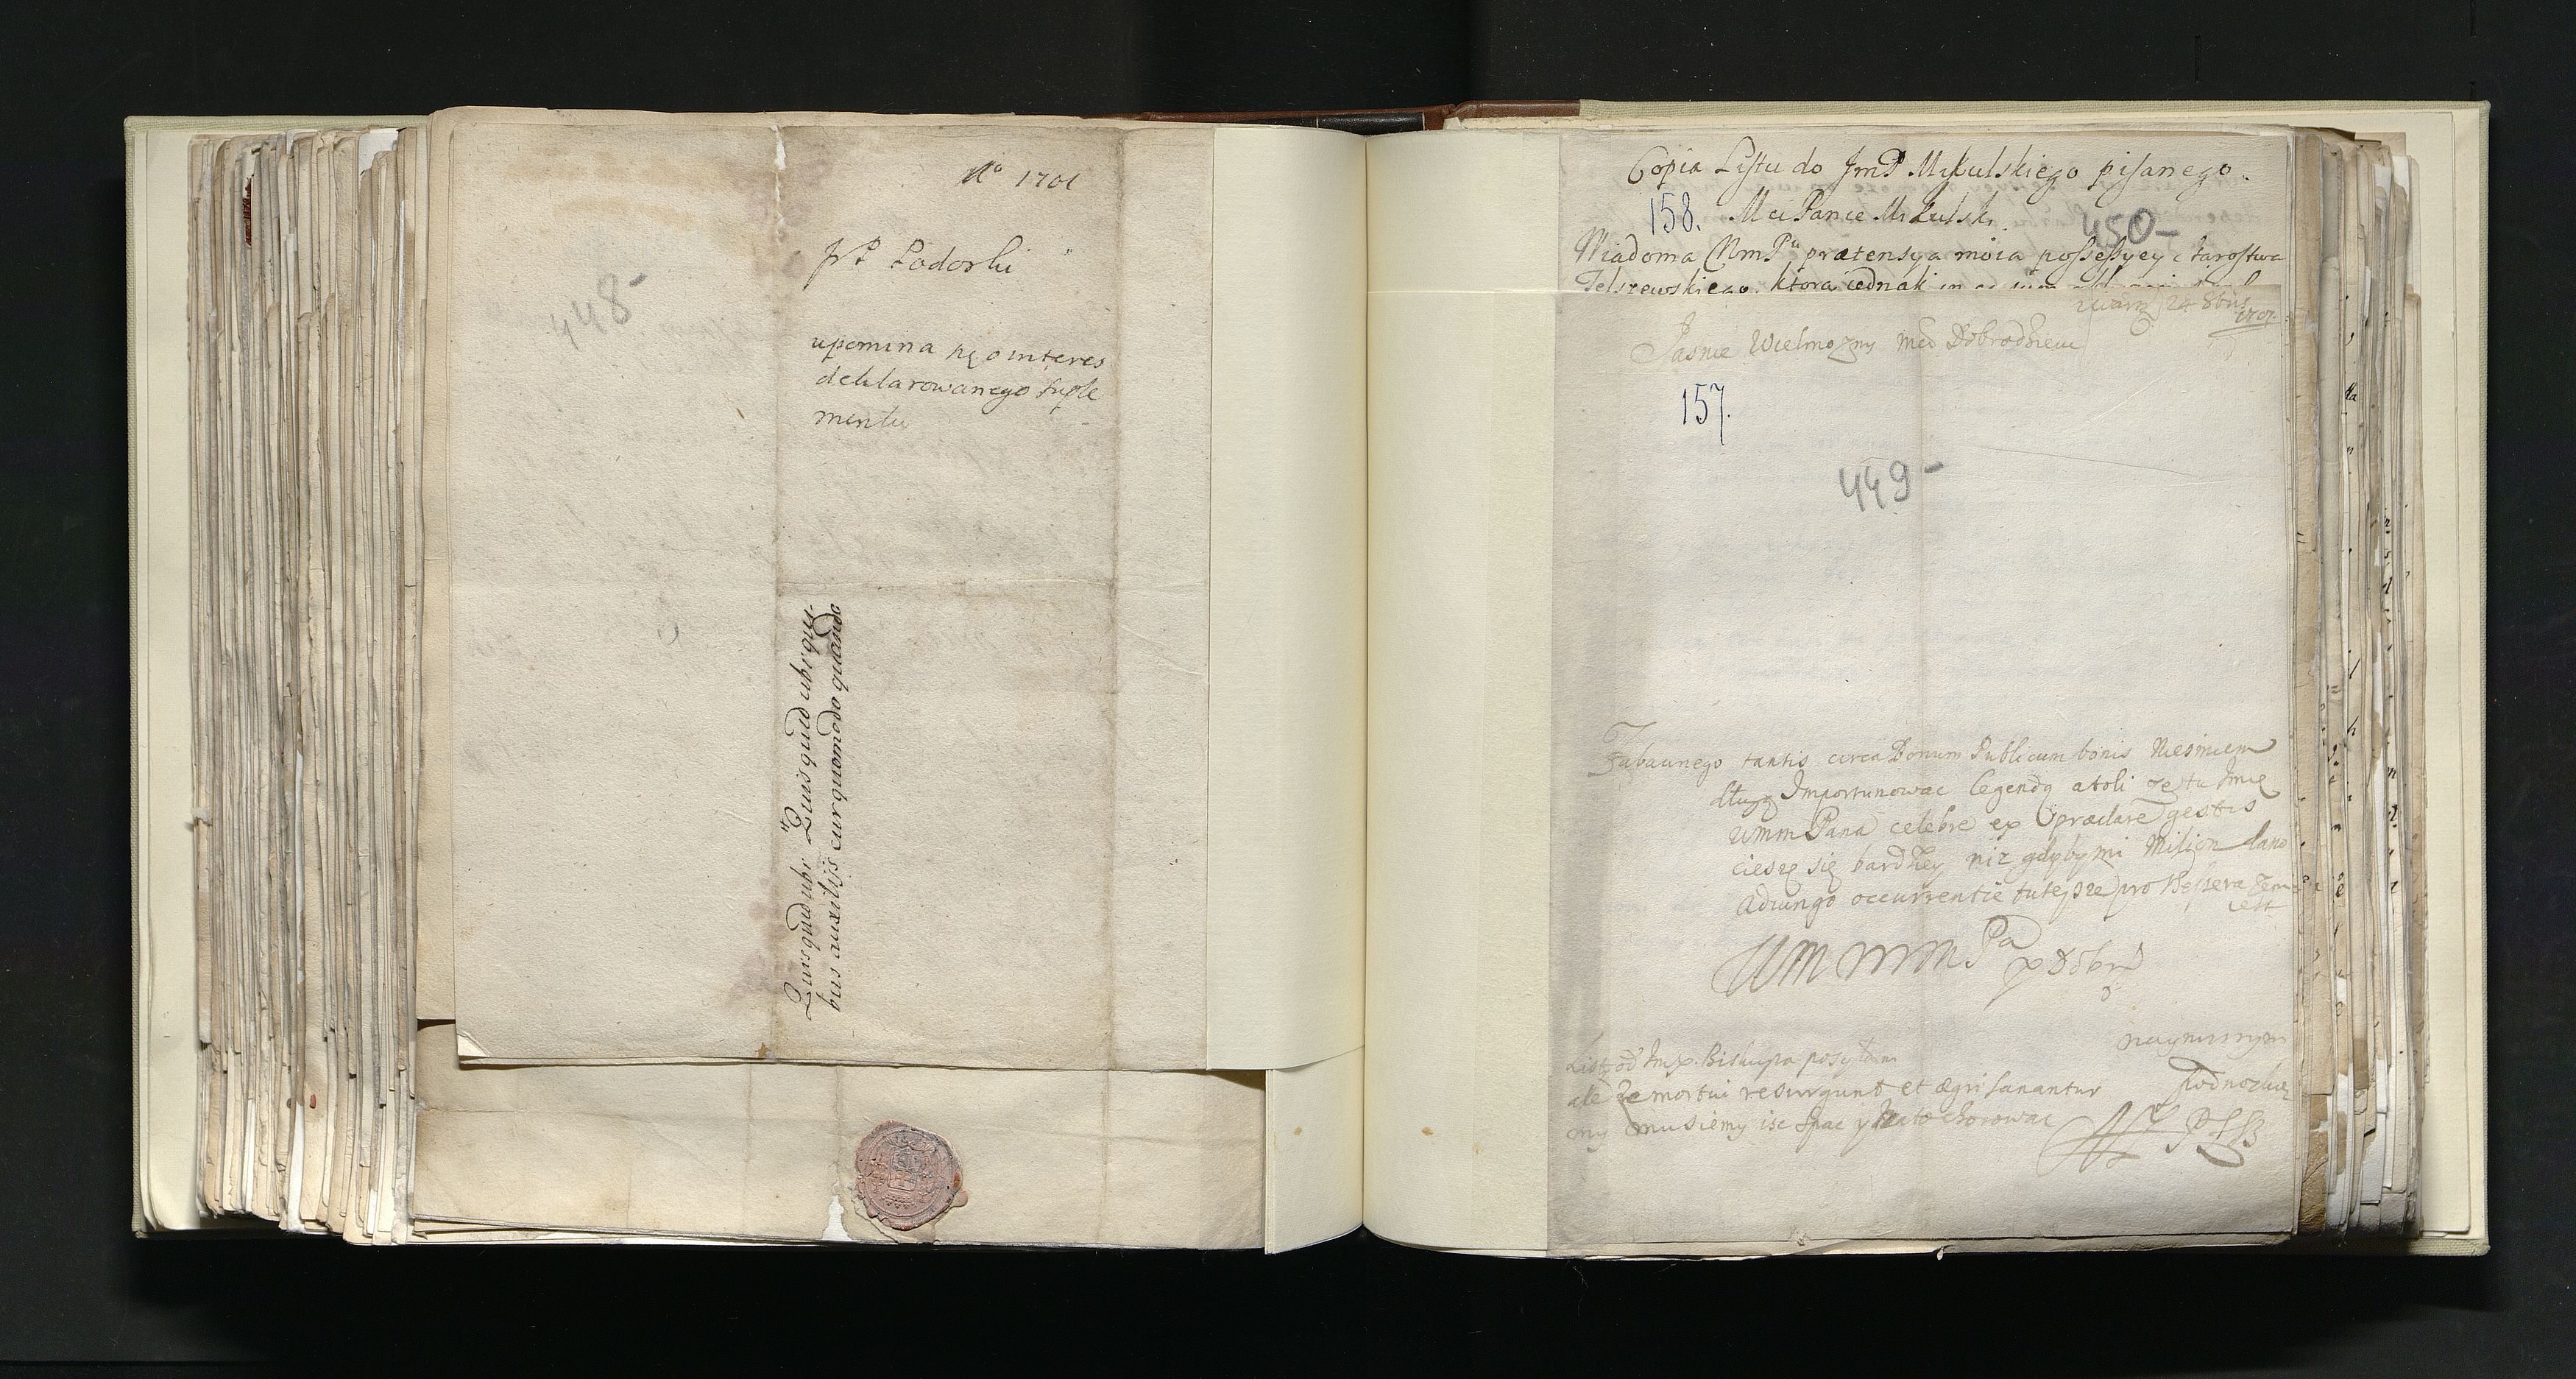 Aº 1701
448-
JP Podorski
upomina się o interes
deklarowanego suple
mentu
Quis quid ubi Quis quid ubi quis
bus auxilijs cur quomodo quando
Copia Listu do JmP Mikulskiego pisanego.
158. Mci Panie Mikulski
450-
Wiadoma WmPu prætensya moia possessyey starostwa
Telszewskiego, ktora iednak in
Warz 24 8bris
1701.
Jasnie Wielmozny Mci Dobrodzieiu
157.
449-
Zabawnego tantis circa Bonum Publicum bonis niesmiem
długo Importunowac legendą atoli ze tu Imię
WMM Pana celebre ex præclare gestis
ciesze się bardziey niz gdyby mi Milion dano
Adiungo occurrentie tutejsze pro
iest
WM MMPa
y Dobrd
nayniszym
podnozkiem
List od Imx. Biskupa posyłam
ale ze mortui resurgunt et ægri sanantur
my musiemy isc spac y chorowac